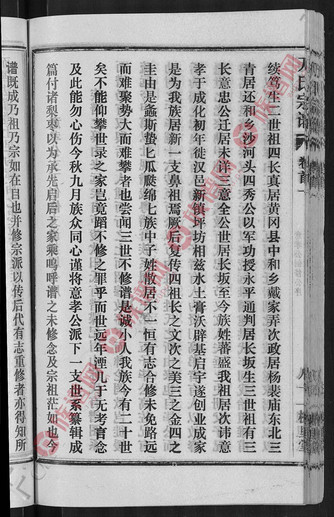 氏宗譜
卷首
续笃生二世祖四长真居黄冈县中和乡戴家弄次政居杨裴庙东北三
青居还和乡沙河头四秀公以军功授永平通判居长坂生三世祖有三
长意忠公迁居未详三意全公世居长坂至今族姓蕃盛我祖居次讳意
孝于成化初年徙汉邑新镇坪坊相兹水土膏沃辟基启宇遂创业成家
是为我族居新一支鼻祖焉厥后复传四祖长之文次之美三之金四之
圭由是螽斯蛰匕瓜瓞绵匕七族中子姓散居不一恒有志合修未免路远
而难聚势大而难举者也尝闻三世不修谱是诚小人我族今有二十世
矣不能仰攀世录之家岂竟蹈不修之罪乎而世远年湮几于无考育念
及此能勿心伤今秋九月族众同心谨将意孝公派下一支世系纂辑成
篇付诸梨枣以为承先启后之家乘呜呼谱之未修念及宗祖茫如也今
谱既成乃祖乃宗如在目也非修宗派以传后代有志重修者亦得知所